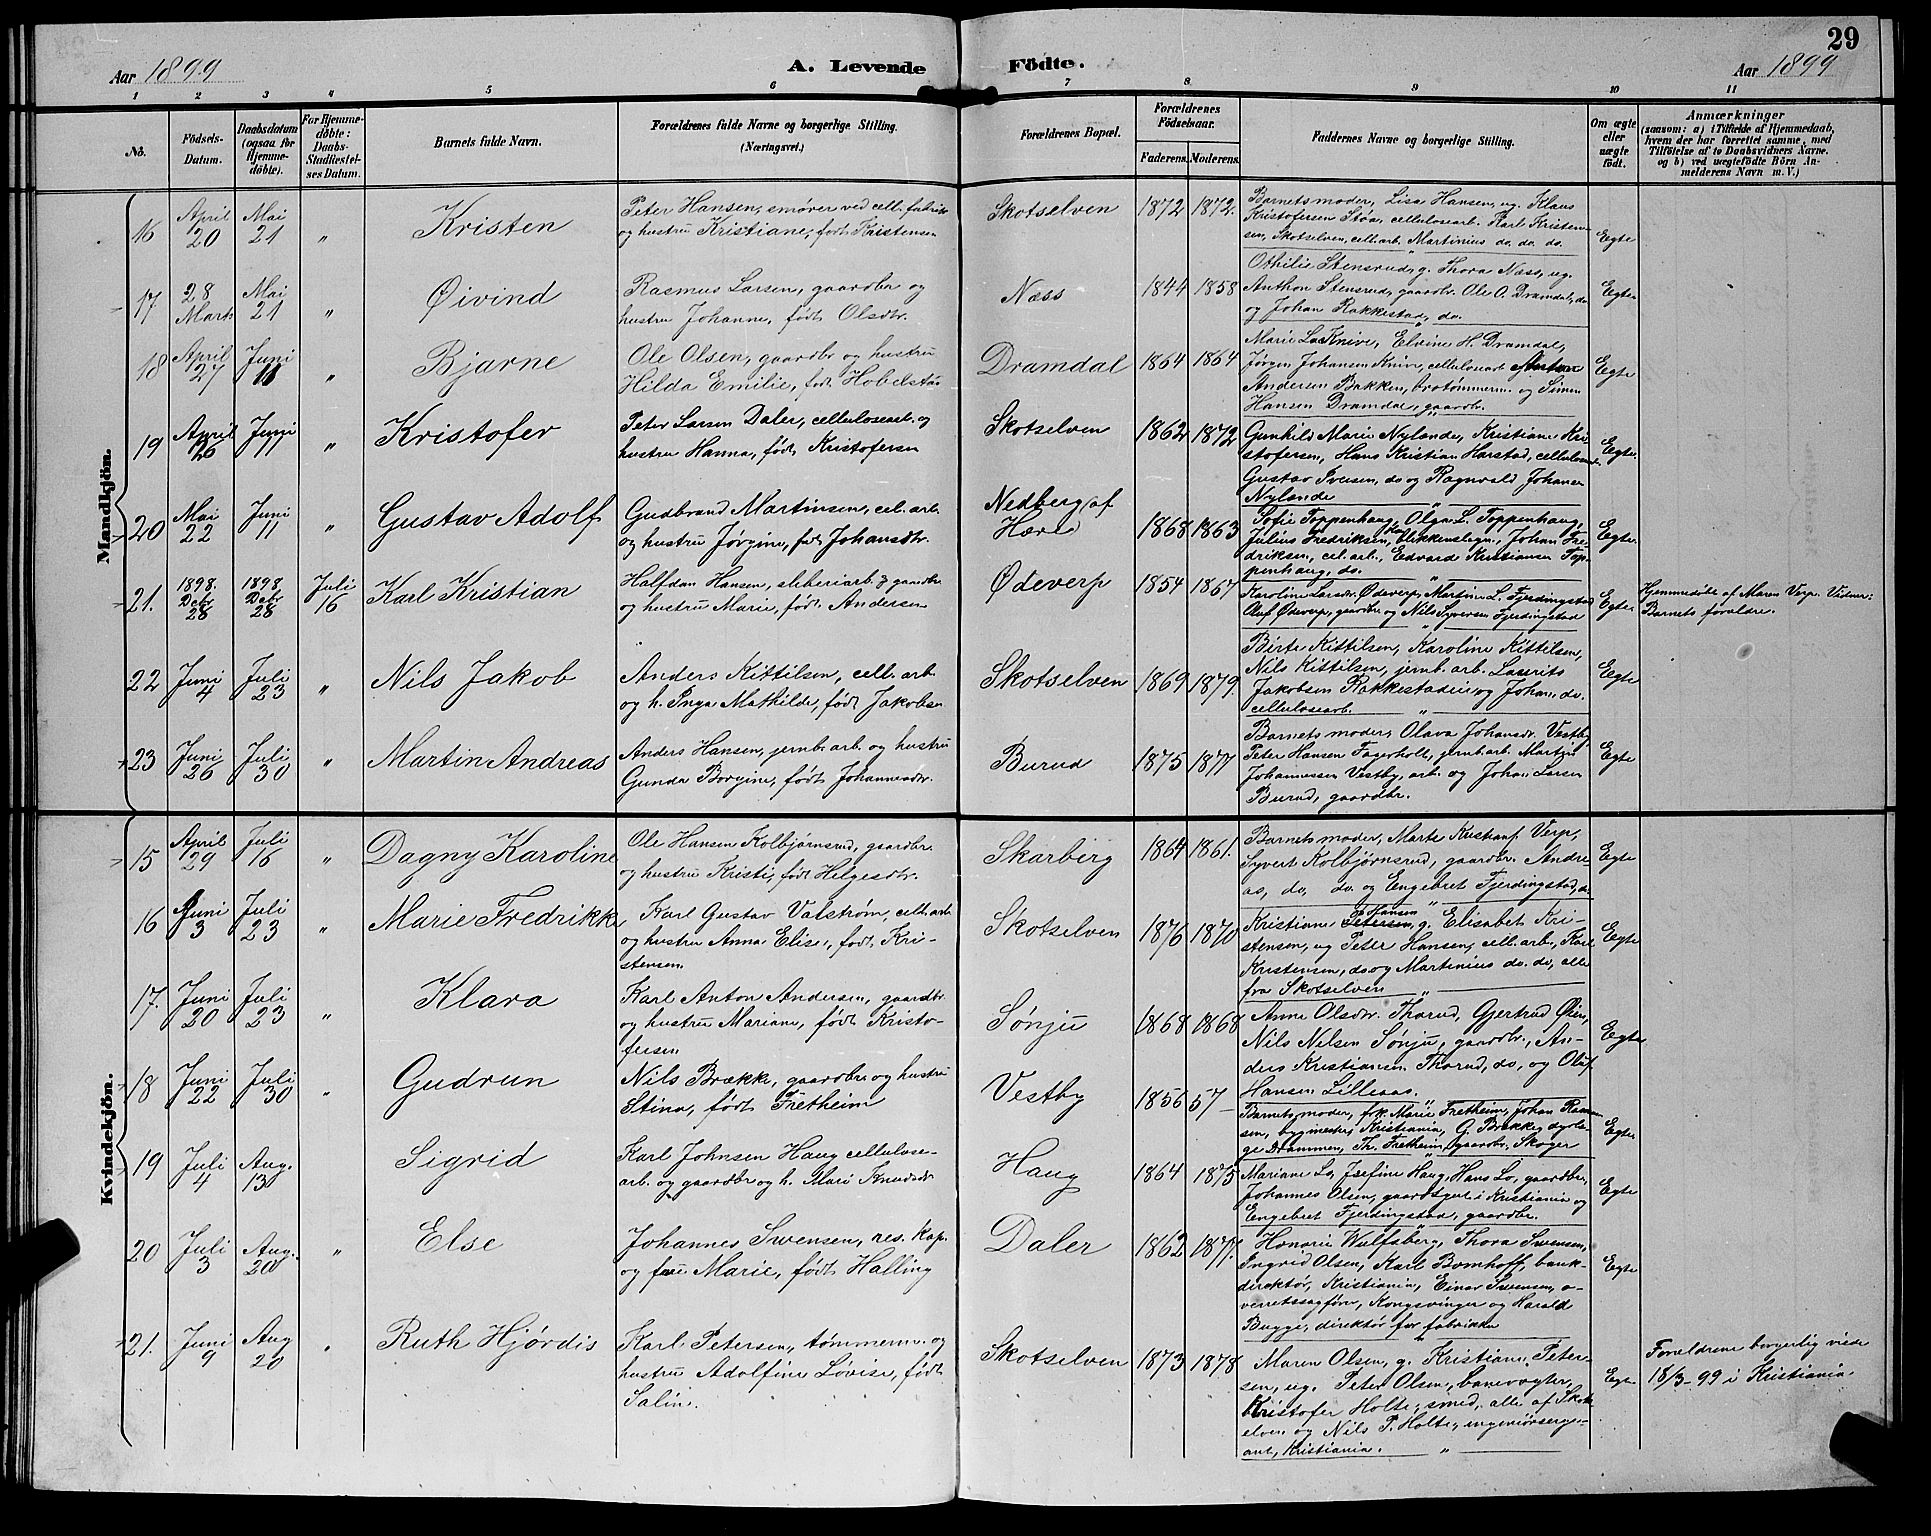 29
Aar 1899 A. Levende Fødte. Aar 1899
1 2 3 4 5 6 7 8 9 10 11
No. Fødsels-Datum. Daabsdatum (ogsaa for Hjemme-døbte). For Hjemme-døbte: Daabs-Stadfæstel-ses Datum. Barnets fulde Navn. Forældrenes fulde Navne og borgerlige Stilling. (Næringsvei.) Forældrenes Bopæl. Forældrenes Fødselsaar. Faderens. Moderens. Faddernes Navne og borgerlige Stilling. Om ægte eller uægte født. Anmærkninger (saasom: a) i Tilfælde af Hjemmedaab, hvem der har forrettet samme, med Tilføielse af to Daabsvidners Navne. og b) ved uægtefødte Børn An-melderens Navn m. V.)
Mandkjøn.
16 April 20 Mai 21 " Kristen
Peter Hansen, smører ved cell. fabrik
og hustru Kristiane, født Kristensen
Skotselven 1872 1872.
Barnets moder, Lisa Hansen, ug. Klaus
Kristofersen Støa, cellulosearb. Karl Kristen-
sen, Skotselven, cell. arb. Martinius do. do. do.
Egte
17 28 Marts Mai 21 " Øivind
Rasmus Larsen, gaardbr og
hustru Johanne, født Olsdtr.
Næss 1844 1858
Othilie Stensrud, g. Thora Næss, ug.
Anthon Stensrud, gaardbr. Ole O. Dramdal, do
og Johan Rakkestad, do.
Egte
18 April 27 Juni 11 " Bjarne
Ole Olsen, gaardbr og hustru
Hilda Emilie, født Hobelstad
Dramdal 1864 1864
Marie L. Knive, Elvine H. Dramdal,
Jørgen Johansen Knive, cellulosearb Anton
Andersen Bakken, brotømmerm. og Simen
Hansen Dramdal, gaardbr.
Egte
19 April 26 Juni 11 " Kristofer
Peter Larsen Daler, cellulosearb. og
hustru Hanna, født Kristofersen
Skotselven 1862 1872
Gunhild Marie Nylande, Kristiane Kri-
stofersen, Hans Kristian Harstad, cellulosearb.
Gustav Iversen, do og Ragnvald Johansen
Nylande
Egte.
20 Mai 22 Juni 11 " Gustav Adolf
Gudbrand Martinsen, cel. arb.
og hustru Jørgine, født Johansdtr.
Nedberg af
Hære 1868 1863
Sofie Toppenhaug, Olga L. Toppenhaug,
Julius Fredriksen, Blikkenslagm., Johan Fre-
driksen, cel. arb., Edvard Kristiansen Top-
penhaug, do.
Egte.
21. 1898 Debr 28 1898 Debr 28 Juli 16 Karl Kristian
Halfdan Hansen, sliberiarb. og gaardbr
og hustru Marie, født Andersen
Ødeverp 1854 1867
Karoline Larsdr. Ødeverp, Martine L. Fjerdingstad
Oluf Ødeverp, gaardbr og Nils Syversen Fjerdingstad
Egte
Hjemmedøbt af Maren Verp. Vidner:
Barnets forældre.
22 Juni 4 Juli 23 " Nils Jakob
Anders Kittilsen, cell. arb.
og h. Inga Mathilde, født Jakobsen
Skotselven 1869 1879.
Birte Kittilsen, Karoline Kittilsen,
Nils Kittilsen, jernb. arb. Laurits
Jakobsen Rakkestadeie og Johan do.
cellulosearb.
Egte
23 Juni 26 Juli 30 " Martin Andreas
Anders Hansen, jernb. arb. og hustru
Gunda Borgine, født Johannesdtr.
Burud 1875 1877
Barnets moder, Olava Johansdr. Vestby
Peter Hansen Fagerholt, jernb. arb. Martin
Johannessen Vestby, arb. og Johan Larsen
Burud, gaardbr.
Egte
Kvindekjøn.
15 April 29 Juli 16 " Dagny Karoline
Ole Hansen Kolbjørnsrud, gaardbr.
og hustru Kristi, født Helgesdtr.
Skarberg 1864 1861.
Barnets moder, Marte Kristians. Verp,
Syvert Kolbjørnsrud, gaardbr. Andre-
as, do, do. og Engebret Fjerdingstad, do
Egte
16 Juni 3 Juli 23 " Marie Fredrikke
Karl Gustav Valstrøm, cell. arb.
og hustru Anna Elise, født Kri-
stensen.
Skotselven 1876 1870
Kristiane Hansen g. Elisabet Kri-
stensen, ug Peter Hansen, cell. arb., Karl
Kristensen, do og Martinius do. do, alle
fra Skotselven
Egte
17. Juni 20 Juli 23 " Klara
Karl Anton Andersen, gaardbr.
og hustru Mariane, født Kristo-
fersen.
Sønju 1868 1868
Anne Olsdtr. Thorud, Gjertrud Øien,
Nils Nilsen Sønju, gaardbr., An-
ders Kristiansen Thorud, do, og Oluf
Hansen Lilleaas.
Egte
18 Juni 22 Juli 30 " Gudrun
Nils Brække, gaardbr og hustru
Stina, født Fretheim
Vestby 1856 57
Barnets moder, frk. Marie Fretheim, Johan Rasmus-
sen, bygmester, Kristiania, G. Brække dyrlæ-
ge Drammen, Th. Fretheim, gaardbr. Skoger
Egte
19 Juli 4 Aug. 13 Sigrid
Karl Johnsen Haug cellulose-
arb. og gaardbr og h. Mari Knudsdr.
Haug 1864 1875
Mariane Lo, Josefine Haug, Hans Lo, gaardbr,
Johannes Olsen, gaardsgut i Kristiania og
Engebret Fjerdingstad, gaardbr.
Egte
20 Juli 3 Aug. 20 " Else
Johannes Svensen, res. kap.
og frue Marie, født Halling
Daler 1862 1877.
Honorie Wulfsberg, Thora Svensen,
Ingrid Olsen, Karl Bomhoff, bank-
direktør, Kristiania, Einar Svensen, o-
verretssagfører, Kongsvinger og Harald
Bugge, direktør for fabrikken
Egte
21. Juni 9 Aug 20 " Ruth Hjørdis
Karl Petersen, tømmerm. og
hustru Adolfine Lovise, født
Salin.
Skotselven 1873 1878
Maren Olsen, g. Kristiane Peter-
sen, ug. Peter Olsen, banevogter,
Kristofer Holte, smed, alle af Skots-
elven og Nils P. Holte, ingeniørserge-
ant, Kristiania.
Egte
Forældrene borgerlig viede
18/3-99 i Kristiania.